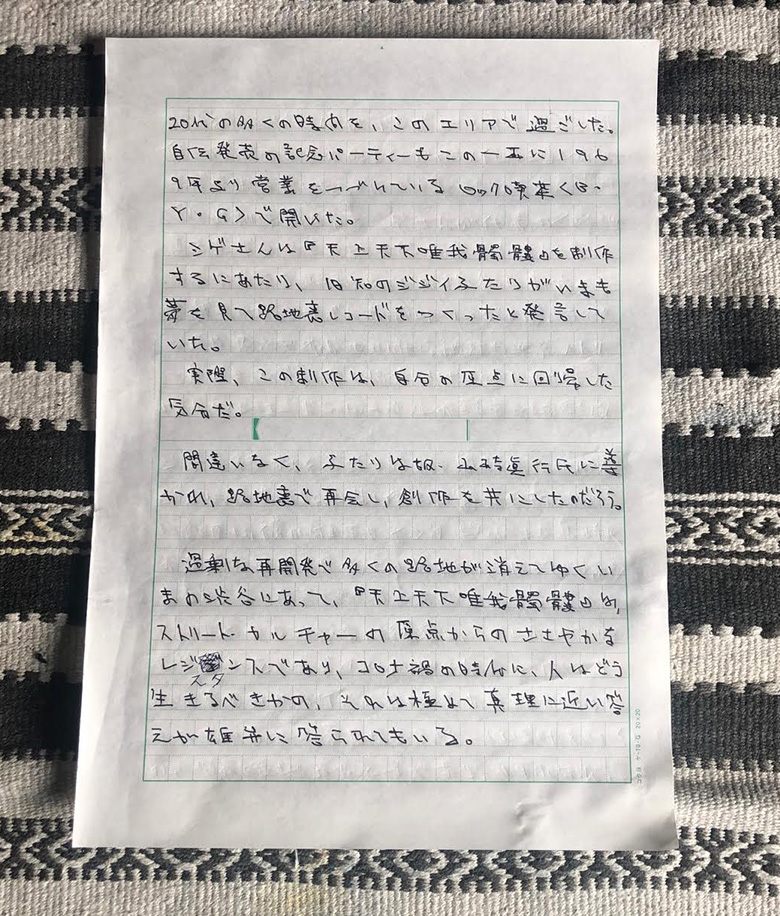 20代の多くの時間を、このエリアで過ごした。
自伝発表の記念パーティーもこの一画に196
9年より営業をつづけているロック喫茶くB・
Y・G〉で開いた。
シゲさんは『天上天下唯我髑髏』を制作
するにあたり、旧知のジジイふたりがいまも
夢を見て路地裏レコードをつくったと発言して
いた。
実際、この制作は、自分の原点に回帰した
気分だ。
間違いなく、ふたりは故・山崎眞行氏に導
かれ、路地裏で再会し、創作を共にしたのだろう。
過剰な再開発で多くの路地が消えてゆくい
まの渋谷にあって、『天上天下唯我髑髏』は、
ストリート・カルチャーの原点からのささやかな
レジスタンスであり、コロナ禍の時代に、人はどう
生きるべきかの、それは極めて真理に近い答
えが雄弁に語られてもいる。
コクヨ ケ-70 20×20